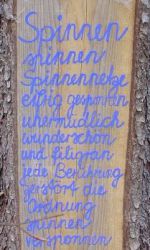 Spinnen
spinnen
Spinnennetze
eifrig gesponnen
unermüdlich
wunderschön
und filigran
jede Berührung
zerstört die
Ordnung
spinnen
versponnen